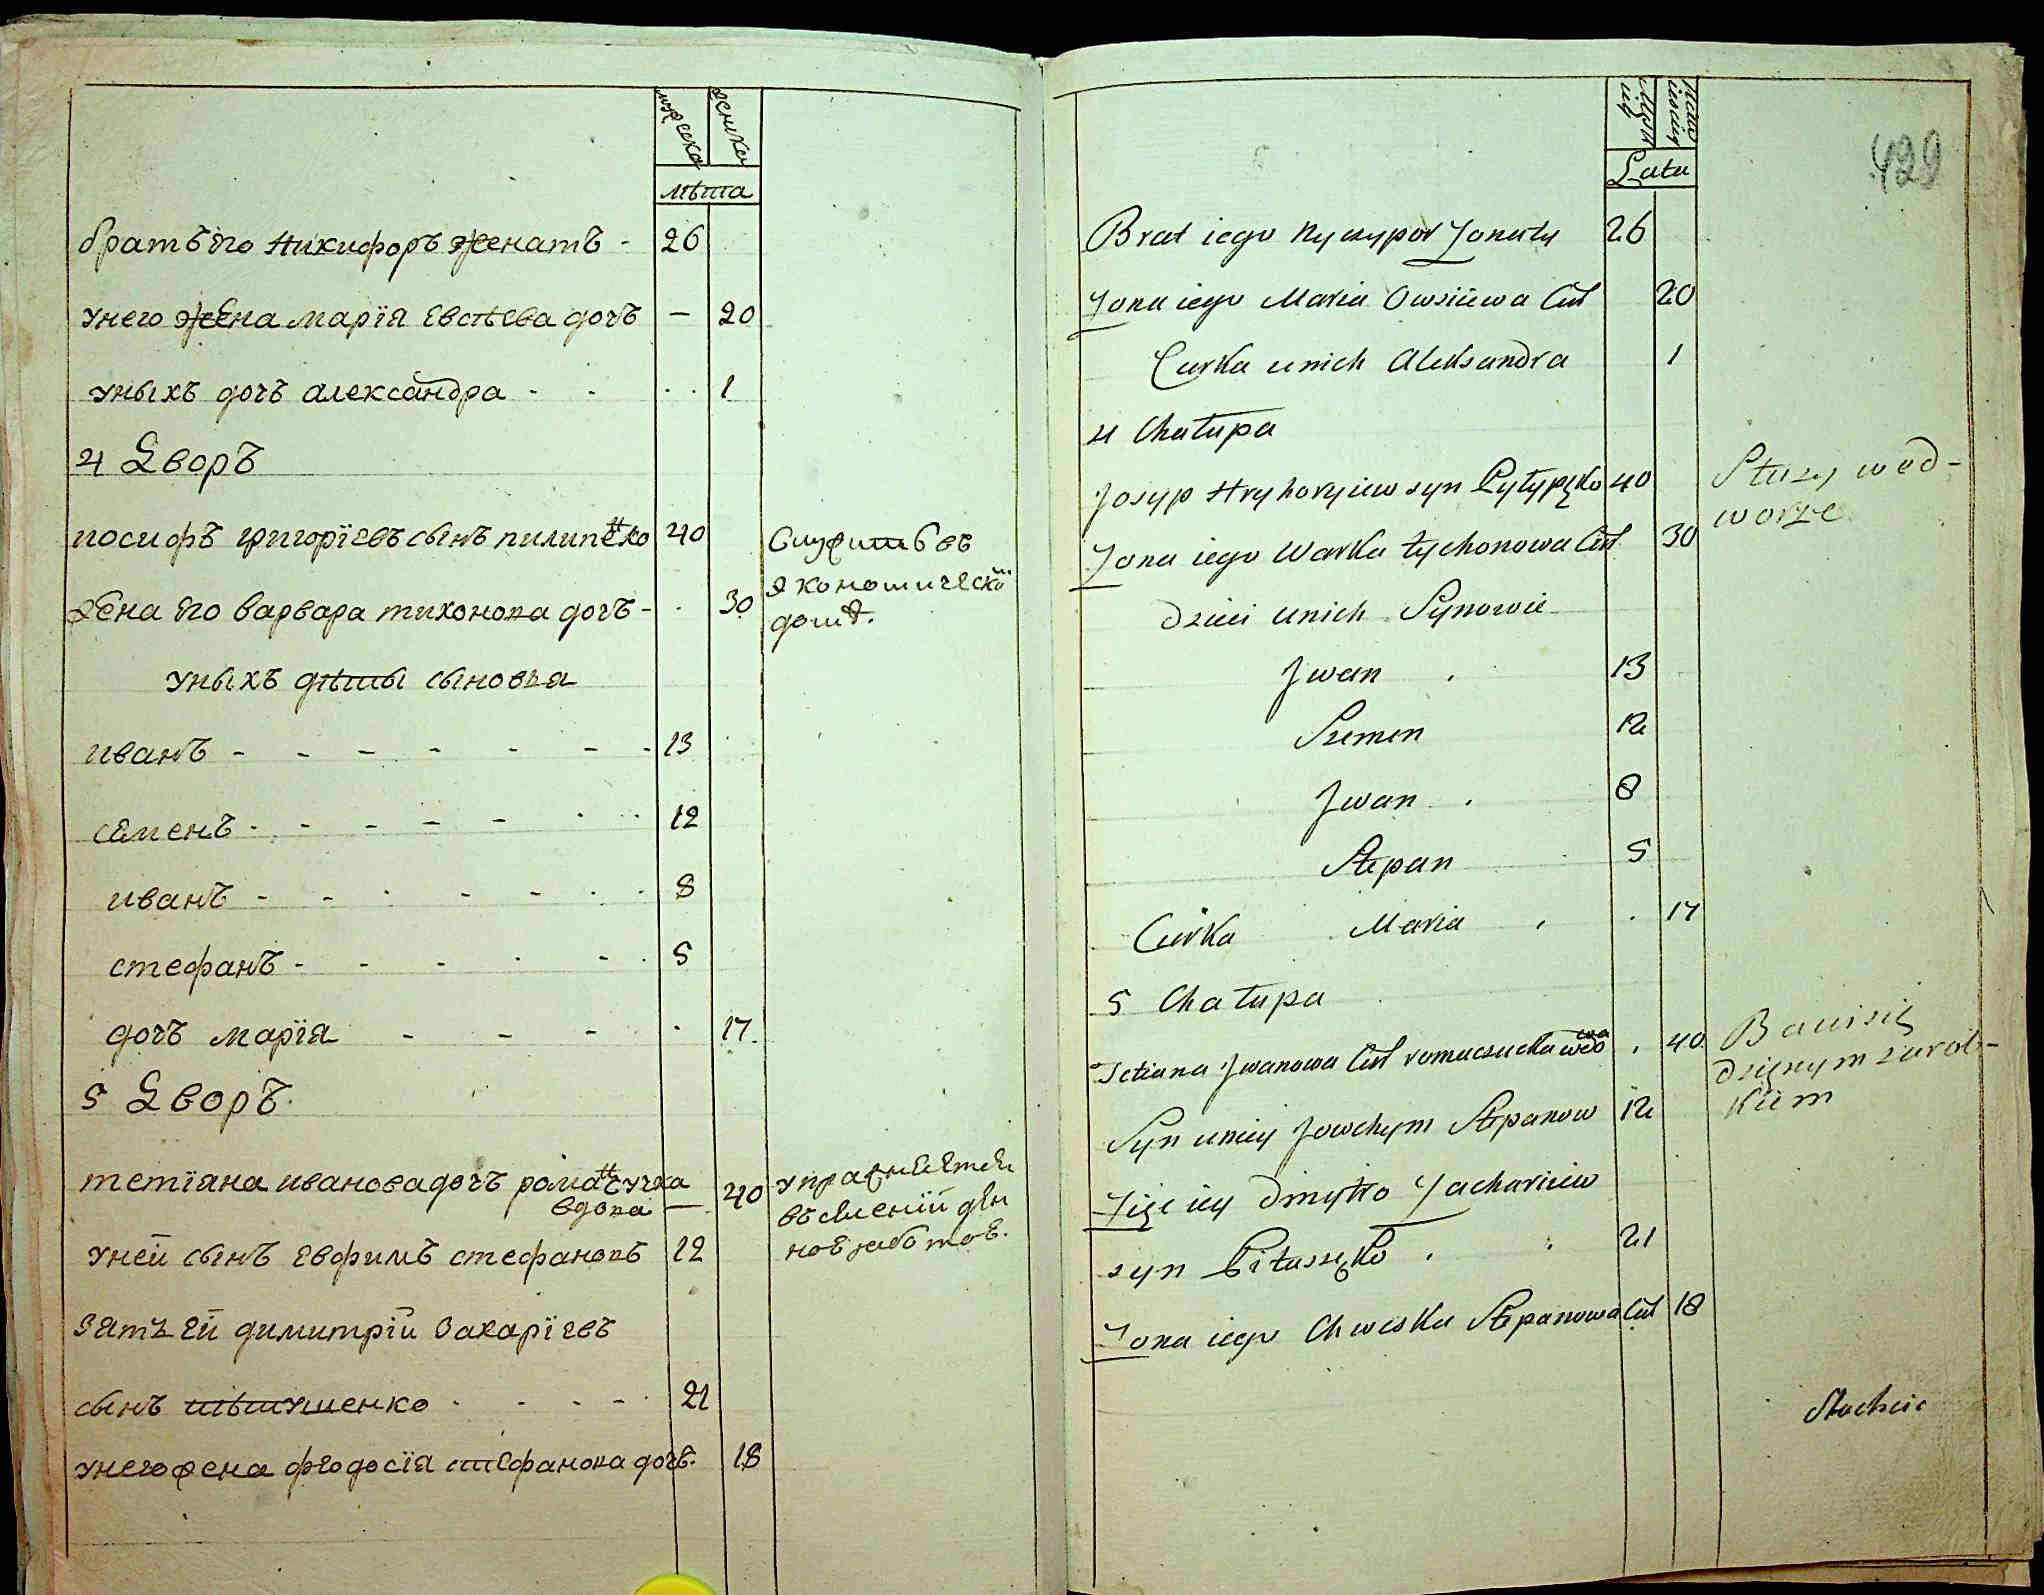 мужеска
женска
лѣта
братъ его Никифоръ женатъ - 26
унего жена марїя Евсѣева дочъ — 20
уныхъ дочъ александра - - . . 1
4 Дворъ
иосифъ григорїевъ сынъ пилипенко 40
Служитъ въ
экономическом
домѣ.
жена его варвара тихонова дочъ - . 30
уныхъ дѣти сыновья
иванъ - - - - - - - 13
семенъ - - - - - . . . 12
иванъ - - . - - . . 8
стефанъ - - - . - . 5
дочъ марїя - - - . 17
5 Дворъ
тетїяна иванова дочъ романчучка
вдова — 40
упражняетси
въ
уней сынъ Евфимъ стефановъ 12
зять ей димитрїй Захарїевъ
сынъ пѣтушенко . - . - - 21
унего жена феодосїя стефанова дочъ. 18
429
Lata
Brat iego Nyczypor Żonaty 26
Żona iego Maria Owsiiewa Cur 20
Curka unich Aleksandra 1
4 Chałupa
Josyp Hryhoryiew syn Pyłypęko 40
Służy wed-
worze
Żona iego Warka Tychonowa Cur 30
Dzieci unich Synowie
Jwan . 13
Szemen 12
Jwan . 8
Stepan 5
Curka Maria , . 17
5 Chałupa
Tetiana Jwanowa Cur romaczucka wdowa . 40
Bawi się
dzięnym zarob-
kiem
Syn uniey Jowchym Stepanow 12
Zięć iey Dmytro Zachariiew
syn Pitaszęko . . 21
Żona iego Chweska Stepanowa Cur 18